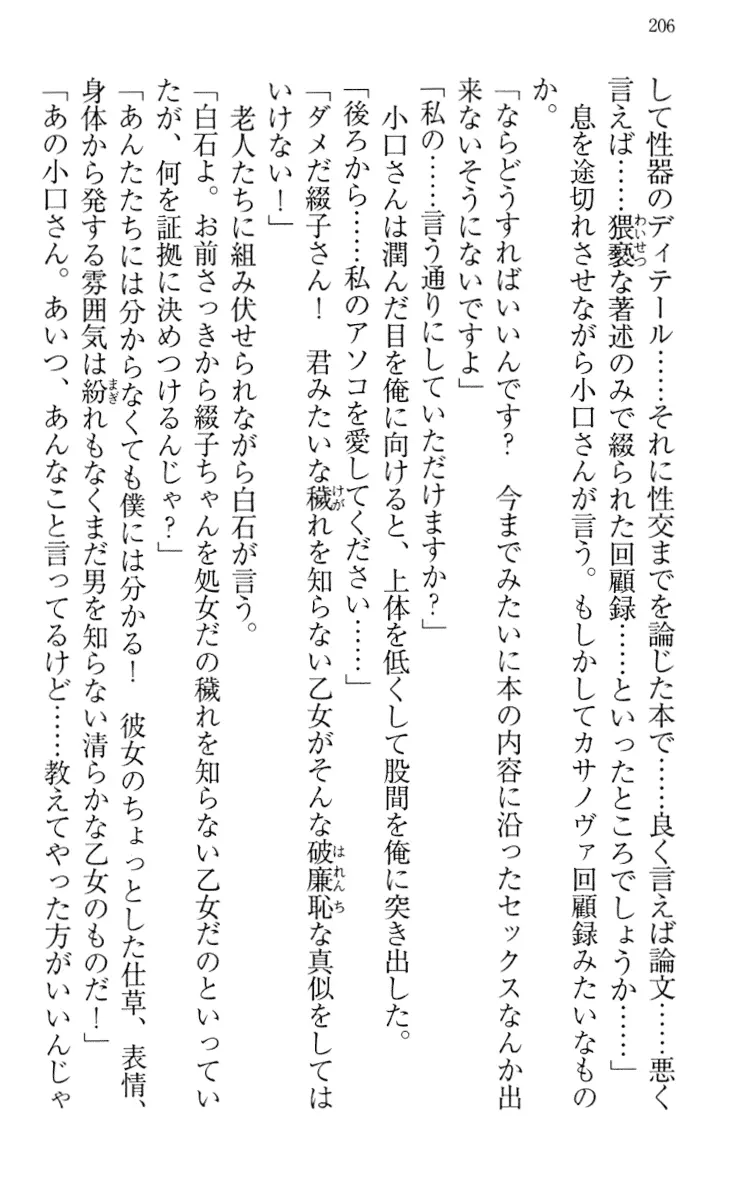 206
して性器のディテール……それに性交までを論じた本で……良く言えば論文……悪く
言えば……猥褻な著述のみで綴られた回顧録……といったところでしょうか……」
　息を途切れさせながら小口さんが言う。もしかしてカサノヴァ回顧録みたいなもの
か。
「ならどうすればいいんです？　今までみたいに本の内容に沿ったセックスなんか出
来ないそうにないですよ」
「私の……言う通りにしていただけますか？」
　小口さんは潤んだ目を俺に向けると、上体を低くして股間を俺に突き出した。
「後ろから……私のアソコを愛してください……」
「ダメだ綴子さん！　君みたいな穢れを知らない乙女がそんな破廉恥な真似をしては
いけない！」
　老人たちに組み伏せられながら白石が言う。
「白石よ。お前さっきから綴子ちゃんを処女だの穢れを知らない乙女だのといってい
たが、何を証拠に決めつけるんじゃ？」
「あんたたちには分からなくても僕には分かる！　彼女のちょっとした仕草、表情、
身体から発する雰囲気は紛れもなくまだ男を知らない清らかな乙女のものだ！」
「あの小口さん。あいつ、あんなこと言ってるけど……教えてやった方がいいんじゃ